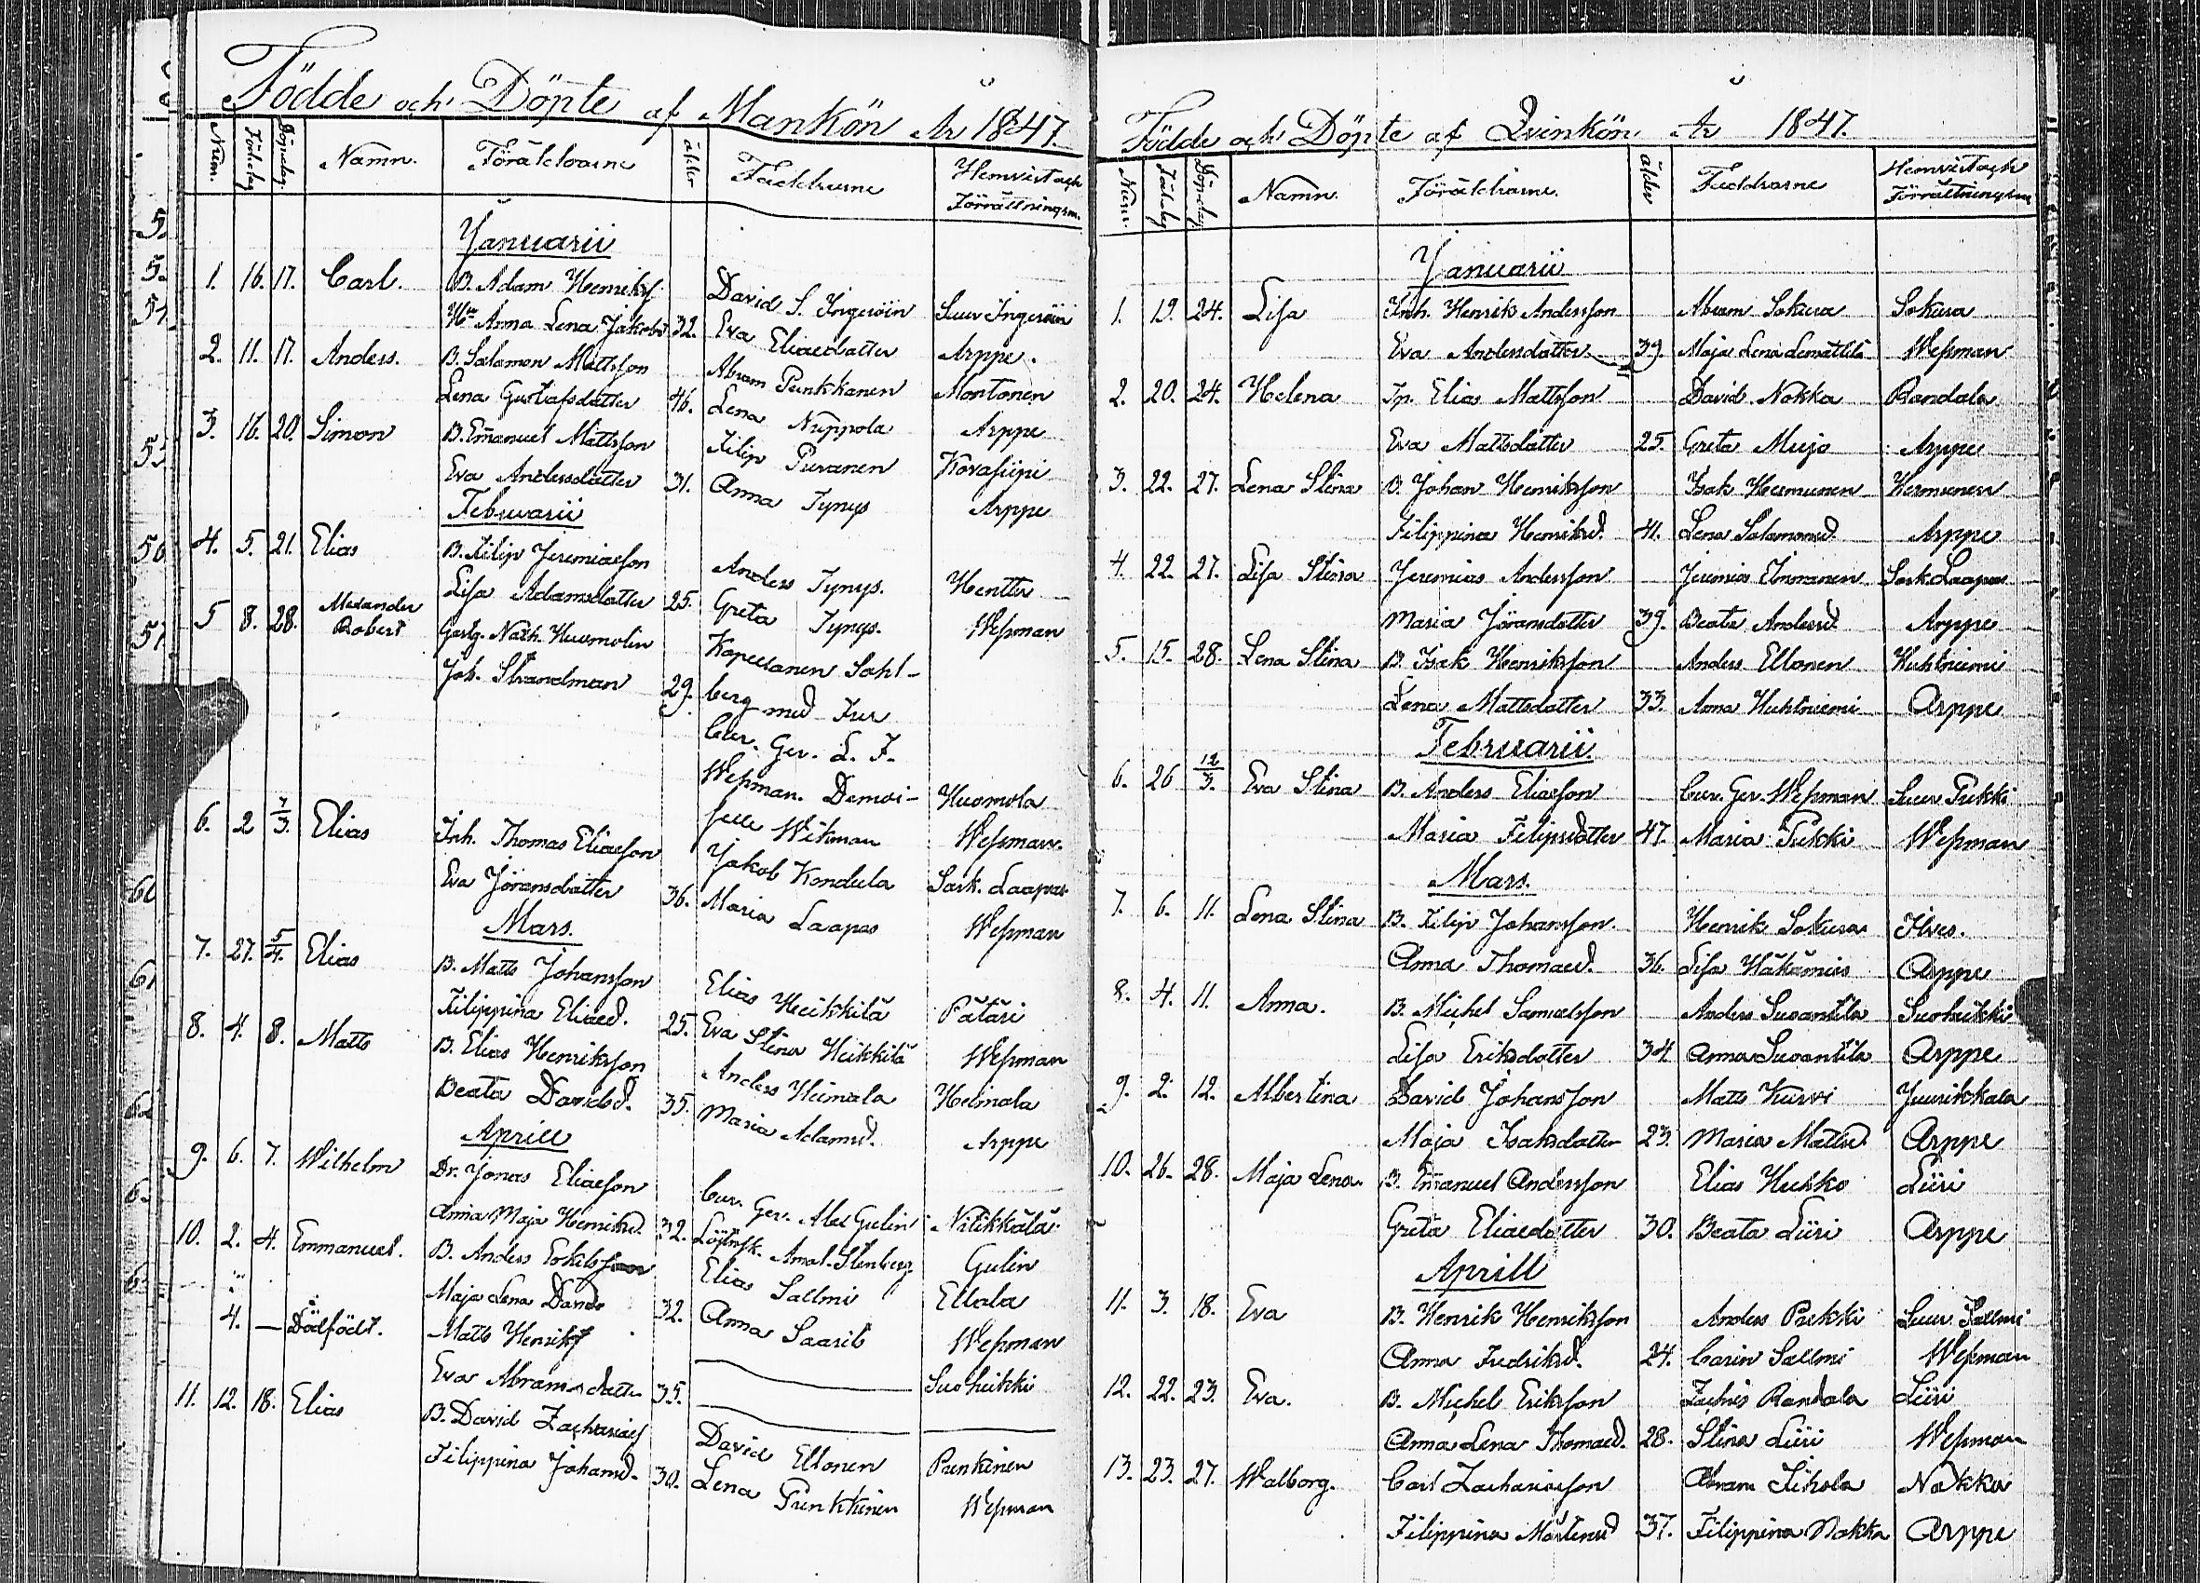 Födde och Döpte af Mankön År 1847.
Num. Födelsedag Döpnedag Namn. Föräldrarne ålder Faddrarne Hemvist och Förrättningsm.
Januarii
1. 16. 17. Carl. B. Adam Henriks. David S. Ingeröin Suur Ingeröin
Hu Anna Lena Jakobsd 32. Eva Eliaedatter Arppe.
2. 11. 17. Anders. B. Salamon Mattsson Abram Punkkanen Montonen
Lena Gustafsdatter 46. Lena Nuppola Arppe
3. 16. 20. Simon B. Emanuel Mattsson Filip Puranen Kovasiipi
Eva Andersdatter 31. Anna Tynys Arppe
Februarii
4. 5. 21. Elias B. Filip Jeremiaeson Anders Tynys. Hentter
Lisa Adamsdatter 25. Greta Tynys. Wessman
5 8. 28. Alexander Robert Gästg. Nath. Huomolin Kapellanen Sahl-
Joh. Strandman 29. berg med Fru
Cur. Ger. L. F.
Wessman. Demoi- Huomola
selle Wikman Wessman.
6. 2 7/3. Elias Inh. Thomas Eliaeson Jakob Kondula Sark. Laapas
Eva Jöransdatter 36. Maria Laapas Wessman
Mars.
7. 27. 5/4. Elias B. Matts Johansson Elias Heikkilä Pätäri
Filippina Eliaed. 25. Eva Stina Heikkilä Wessman
8. 4. 8. Matts B. Elias Henriksson Anders Heimala Heimala
Beata Davidsd. 35. Maria Adamsd. Arppe
Aprill
9. 6. 7. Wilhelm Dr. Jonas Eliaeson Cur. Ger. Alex Gulin Niukkälä
Anna Maja Henriksd. 32. Amal. Stenberg Gulin
10. 2. 4. Emmanuel. B. Anders Eskelsson Elias Sallmi Ellala
Maja Lena Davids 32. Anna Saarils Wessman
4. — Dödfödt. Matts Henriks Suoheikki
Eva Abramsdatter 35.
11. 12. 18. Elias B. David Zacharias David Ellonen Punkinen
Filippina Johansd. 30. Lena Punkkinen Wessman
Födde och Döpte af Qvinkön År 1847.
Num. Födelsedag Döpnedag Namn. Föräldrarne. ålder Faddrarne Hemvist och Förrättningsm.
Januarii
1. 19. 24. Lisa Inh. Henrik Andersson Abram Sokura Sokura
Eva Andersdatter 39. Maja Lena Lemättilä Wessman
2. 20. 24. Helena Tp. Elias Mattsson David Nokka Randala
Eva Mattsdatter 25. Greta Meijo Arppe
3. 22. 27. Lena Stina B. Johan Henriksson Isak Hermunen Hermunen
Filippina Henriksd. 41. Lena Salamonsd. Arppe
4. 22. 27. Lisa Stina Jeremias Andersson Jeremia Immonen Sark. Laapas
Maria Jöransdatter 39. Beata Andersd. Arppe
5. 15. 28. Lena Stina B. Isak Henriksson Anders Ellonen Huhtniemi
Lena Mattsdatter 33. Anna Huhtniemi Arppe
Februarii.
6. 26 12/3. Eva Stina B. Anders Eliaeson Cur. Ger. Wessman Suur Pukki
Maria Filipsdatter 47. Maria Pukki Wessman
Mars.
7. 6. 11. Lena Stina B. Filip Johansson. Henrik Sokura Ilves.
Anna Thomaed. 36. Lisa Häkämies Arppe
8. 4. 11. Anna. B. Michel Samuelsson Anders Suoantila Suoheikki
Lisa Eriksdatter 34. Anna Suoantila Arppe
9. 2. 12. Albertina David Johansson Matts Kurvi Juurikkala
Maja Isaksdatter 23. Maria Mattsd. Arppe
10. 26. 28. Maja Lena. B. Emanuel Andersson Elias Hukko Liiri
Greta Eliaedatter 30. Beata Liiri Arppe
Aprill
11. 3. 18. Eva B. Henrik Henriksson Anders Pukki Suur Sallmi
Anna Fredriksd. 24. Carin Sallmi Wessman
12. 22. 23. Eva. B. Michel Eriksson Zachris Randala Liiri
Anna Lena Thomaed. 28. Stina Liiri Wessman
13. 23. 27. Walborg. Carl Zachariasson Abram Sihvola Nokka
Filippina Mårtensd 37. Filippina Nokka Arppe